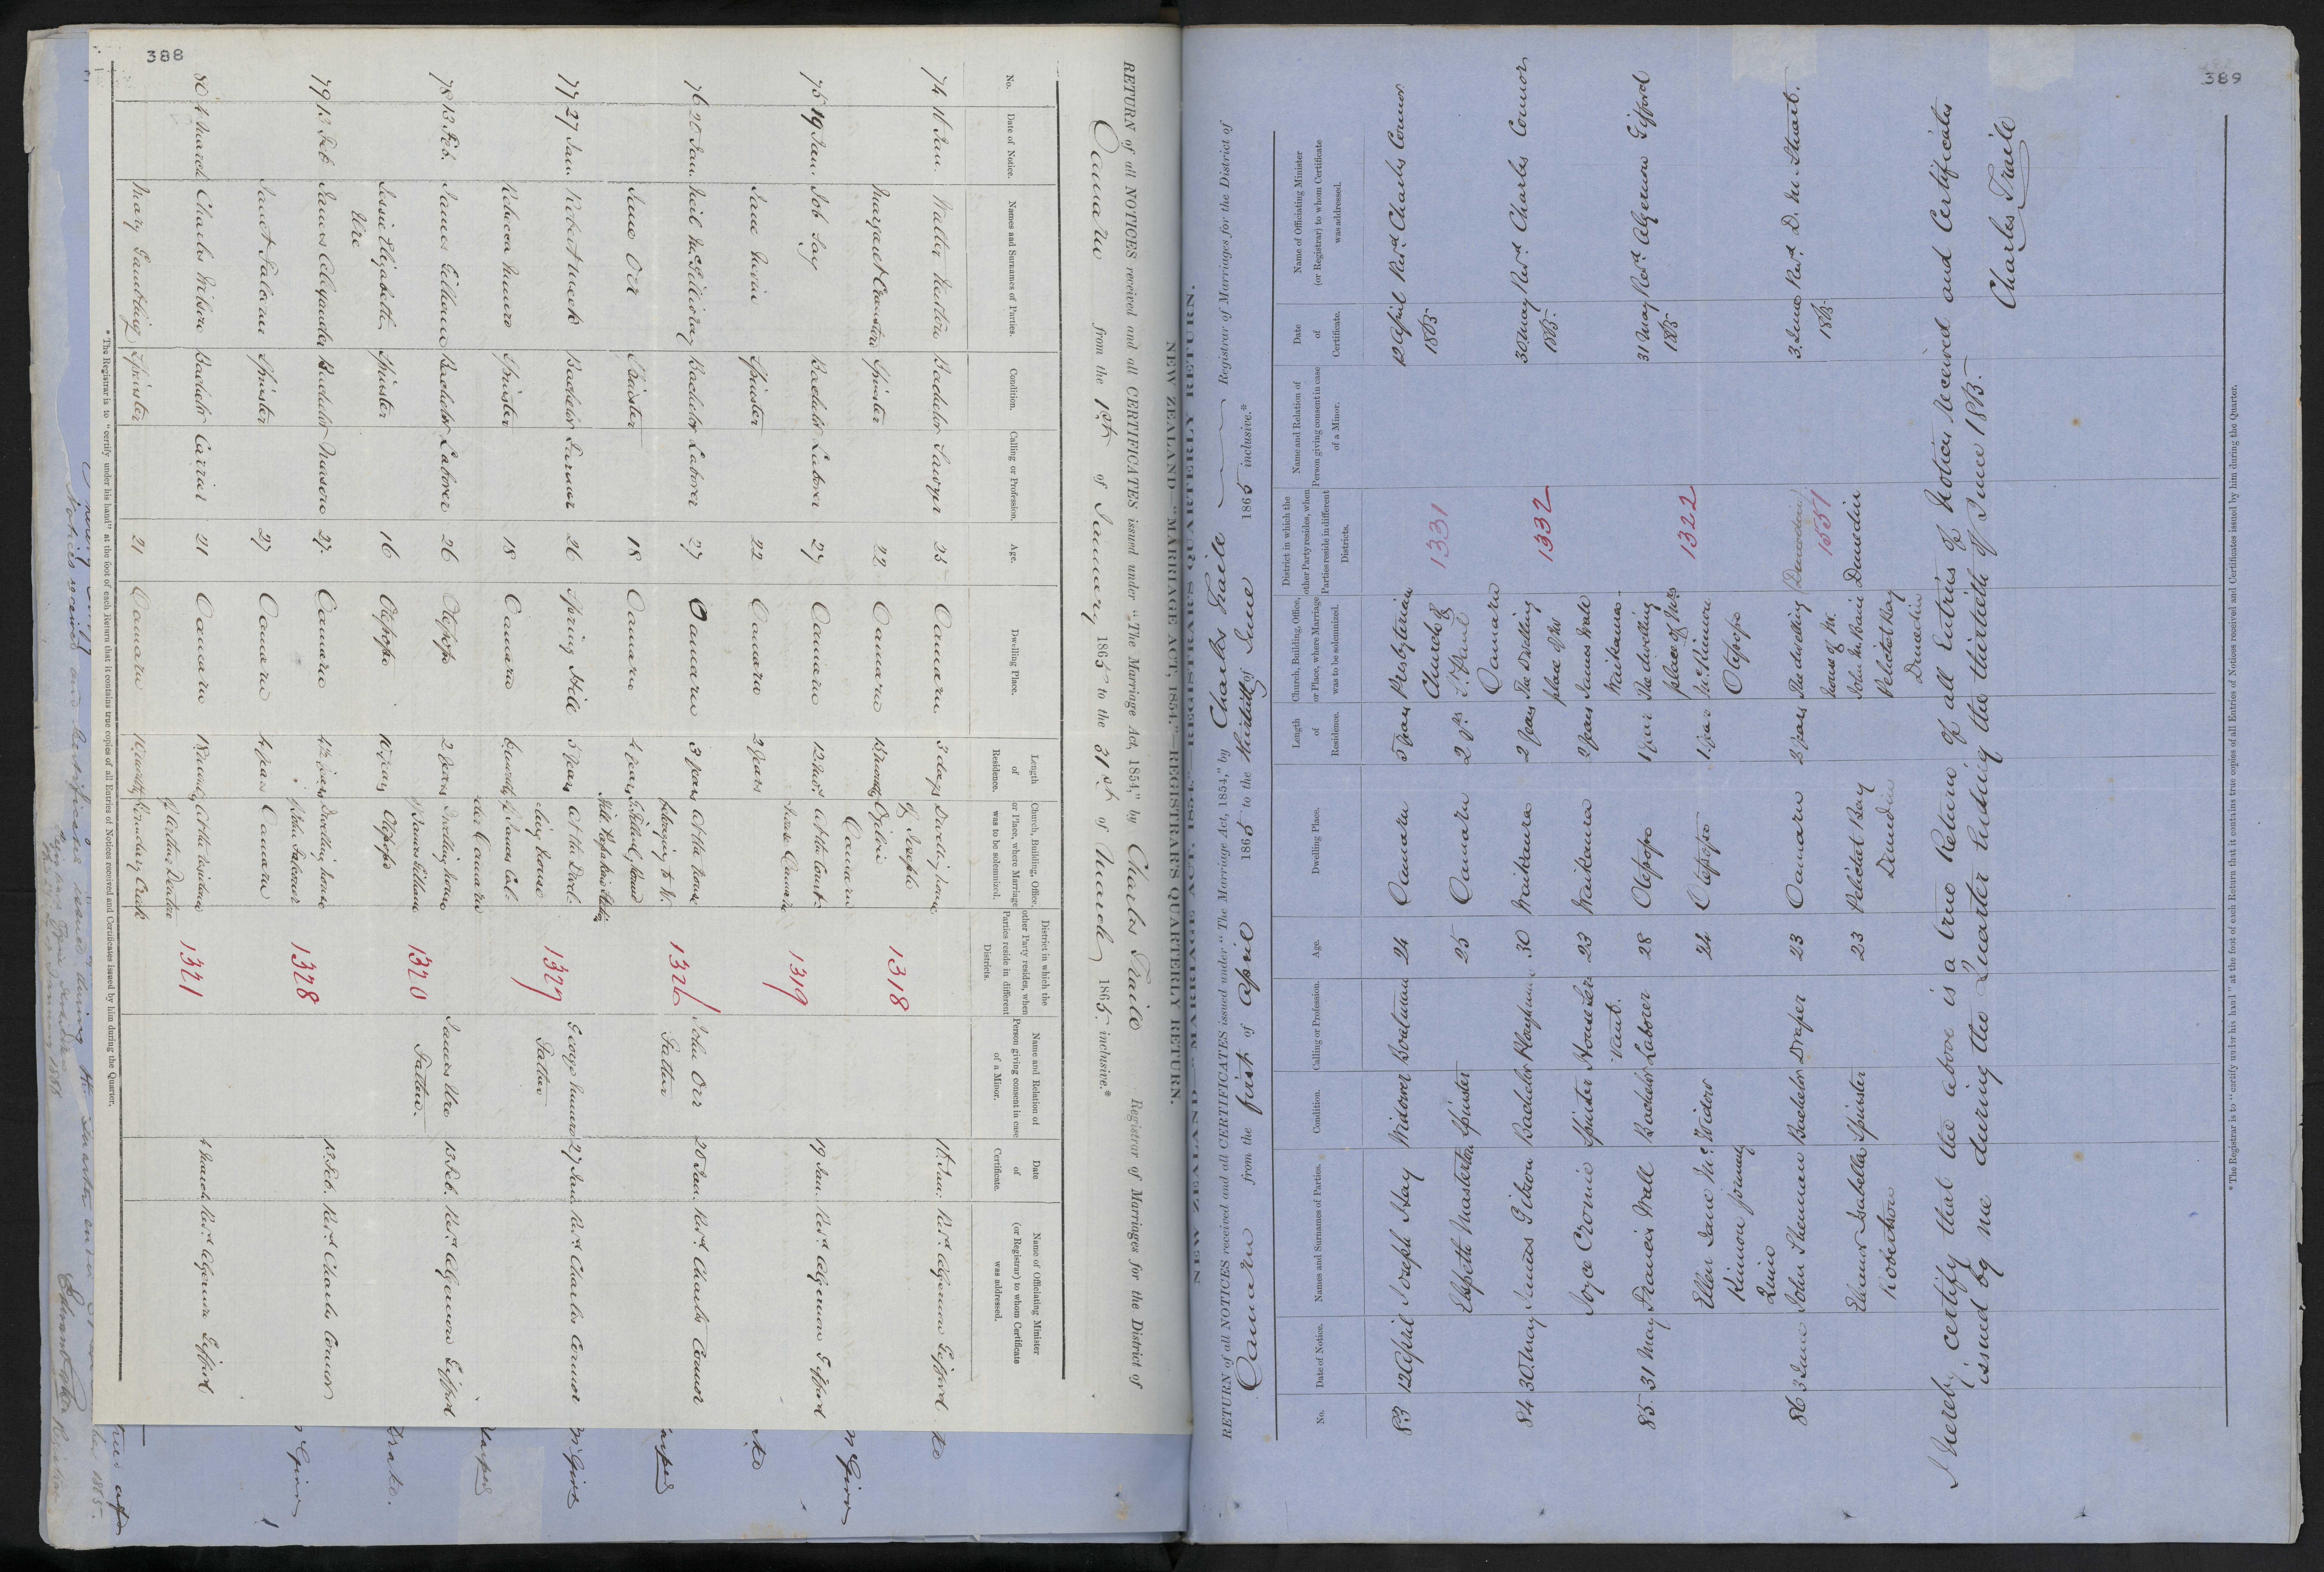 388
NEW ZEALAND—"MARRIAGE ACT, 1854."—REGISTRAR'S QUARTERLY RETURN.
RETURN of all NOTICES received and all CERTIFICATES issued under "The Marriage Act, 1854," by Charles Traill Registrar of Marriages for the District of
Oamaru from the 1st of January 1865 to the 31st of March 1865 inclusive.*
No. Date of Notice. Names and Surnames of Parties. Condition. Calling or Profession. Age. Dwelling Place. Length of Residence. Church, Building, Office, or Place, where Marriage was to be solemnized. District in which the other Party resides, when Parties reside in different Districts. Name and Relation of Person giving consent in case of a Minor. Date of Certificate. Name of Officiating Minister (or Registrar) to whom Certificate was addressed.
74 11 Jan. Walter Bachelor Sawyer 25 Oamaru 3 days Dwelling house 11 Jan. Revd. Algernon Gifford
of Joseph
Margaret Cranston Spinster 22 Oamaru 15 months Ogilvie 1318
Oamaru
75 19 Jan. Job Bachelor Laborer 27 Oamaru 12 At the Court 19 Jan. Revd. Algernon Gifford
house Oamaru 1319
Jane Spinster 22 Oamaru 2 years
76 20 Jan. Neil McGillivray Bachelor Laborer 27 Oamaru 3 years At the house John Orr 20 Jan. Revd. Charles Connor
belonging to 1326 Father
Jane Orr Spinster 18 Oamaru 4 years
77 27 Jan. Robert Bachelor Farmer 26 Spring Hill 5 years At the Dwel- George Munro 27 Jan. Revd. Charles Connor
ling house 1327 Father
Rebecca Munro Spinster 18 Oamaru 6 months
Oamaru
78 13 Feb. James Gilhame Bachelor Laborer 26 Otepopo 2 years Dwelling house James Ure 13 Feb. Revd. Algernon Gifford
of James Gilhame 1320 Father
Jessie Elizabeth Spinster 16 Otepopo 10 years Otepopo
Ure
79 13 Feb James Alexander Bachelor Mason 27 Oamaru 4½ years Dwelling house 13 Feb. Revd. Charles Connor
John Falconer 1328
Janet Falconer Spinster 27 Oamaru 4 years Oamaru
80 4 March Charles Wilson Bachelor Carrier 21 Oamaru 18 months At the residence 4 March Revd. Algernon Gifford
of 1321
Mary Spinster 21 Oamaru 10 months Creek
* The Registrar is to "certify under his hand" at the foot of each Return that it contains true copies of all Entries of Notices received and Certificates issued by him during the Quarter.
389
NEW ZEALAND—"MARRIAGE ACT, 1854."—REGISTRAR'S QUARTERLY RETURN.
RETURN of all NOTICES received and all CERTIFICATES issued under "The Marriage Act, 1854," by Charles Traill Registrar of Marriages for the District of
Oamaru from the first of April 1865 to the thirtieth of June 1865 inclusive.*
No. Date of Notice. Names and Surnames of Parties. Condition. Calling or Profession. Age. Dwelling Place. Length of Residence. Church, Building, Office, or Place, where Marriage was to be solemnized. District in which the other Party resides, when Parties reside in different Districts. Name and Relation of Person giving consent in case of a Minor. Date of Certificate. Name of Officiating Minister (or Registrar) to whom Certificate was addressed.
83 12 April Joseph Hay Widower Boatman 24 Oamaru 5 years Presbyterian 12 April Revd. Charles Connor
Church of 1331 1865
Elspeth Masterton Spinster 25 Oamaru 2 yrs St. Paul
Oamaru
84 30 May James Pitkon Bachelor Ploughman 30 Waikaura 2 years The dwelling 30 May Revd. Charles Connor
place of Mr 1332 1865.
Joyce Cromie Spinster House Ser- 23 Waikaura 2 years James Hall
vant. Waikaura
85 31 May Francis Wall Bachelor Laborer 28 Otepopo 1 year The dwelling 31 May Revd. Algernon Gifford
place of Mrs 1322 1865
Ellen Jane Mc Widow 24 Otepopo 1 year McKinnon
Kinnon formerly Otepopo
Quin
86 3 June John Sherman Bachelor Draper 23 Oamaru 2 years The dwelling (Dunedin) 3 June Revd. D. M. Stuart.
house of Mr. 1551 1865
Eleanor Isabella Spinster 23 Pelichet Bay John McBain Dunedin
Robertson Dunedin Pelichet Bay
Dunedin
I hereby certify that the above is a true Return of all Entries of Notices received and Certificates
issued by me during the Quarter Ending the thirtieth of June 1865.
Charles Traill
* The Registrar is to "certify under his hand" at the foot of each Return that it contains true copies of all Entries of Notices received and Certificates issued by him during the Quarter.